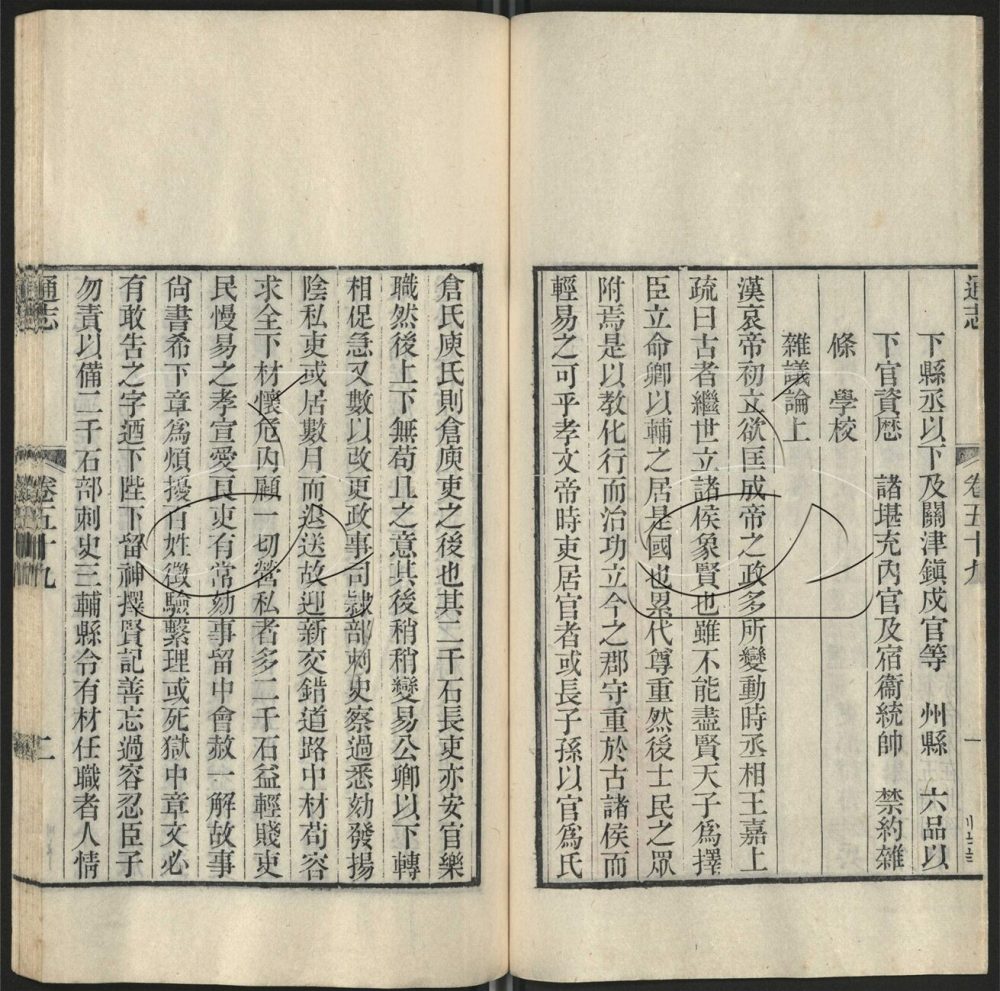 通志
卷五十九
一
下縣丞以下及關津鎮戍官等　州縣　六品以
下官資歷　諸堪充內官及宿衞統帥　禁約雜
條　學校
雜議論上
漢哀帝初立欲匡成帝之政多所變動時丞相王嘉上
疏曰古者繼世立諸侯象賢也雖不能盡賢天子為擇
臣立命卿以輔之居是國也累代尊重然後士民之眾
附焉是以教化行而治功立今之郡守重於古諸侯而
輕易之可乎孝文帝時吏居官者或長子孫以官為氏
倉氏庾氏則倉庾吏之後也其二千石長吏亦安官樂
職然後上下無苟且之意其後稍稍變易公卿以下轉
相促急又數以改更政事司隸部刺史察過悉劾發揚
陰私吏或居數月而退送故迎新交錯道路中材苟容
求全下材懷危內顧一切營私者多二千石益輕賤吏
民慢易之孝宣愛良吏有常劾事留中會赦一解故事
尚書希下章為煩擾百姓徵驗繫理或死獄中章文必
有敢告之字迺下陛下留神擇賢記善忘過容忍臣子
勿責以備二千石部刺史三輔縣令有材任職者人情
通志
卷五十九
二